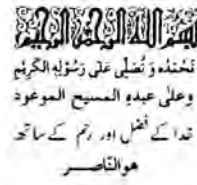 بسم الله الرحمن الرحيم
نَحْمَدُه وَ نُصَلِّى عَلٰى رَسُوْلِهِ الْكَرِيْمِ
وعلٰى عبدهِ المسيح الموعود
خدا کے فضل اور رحم کے ساتھ
هو النّاصـــر